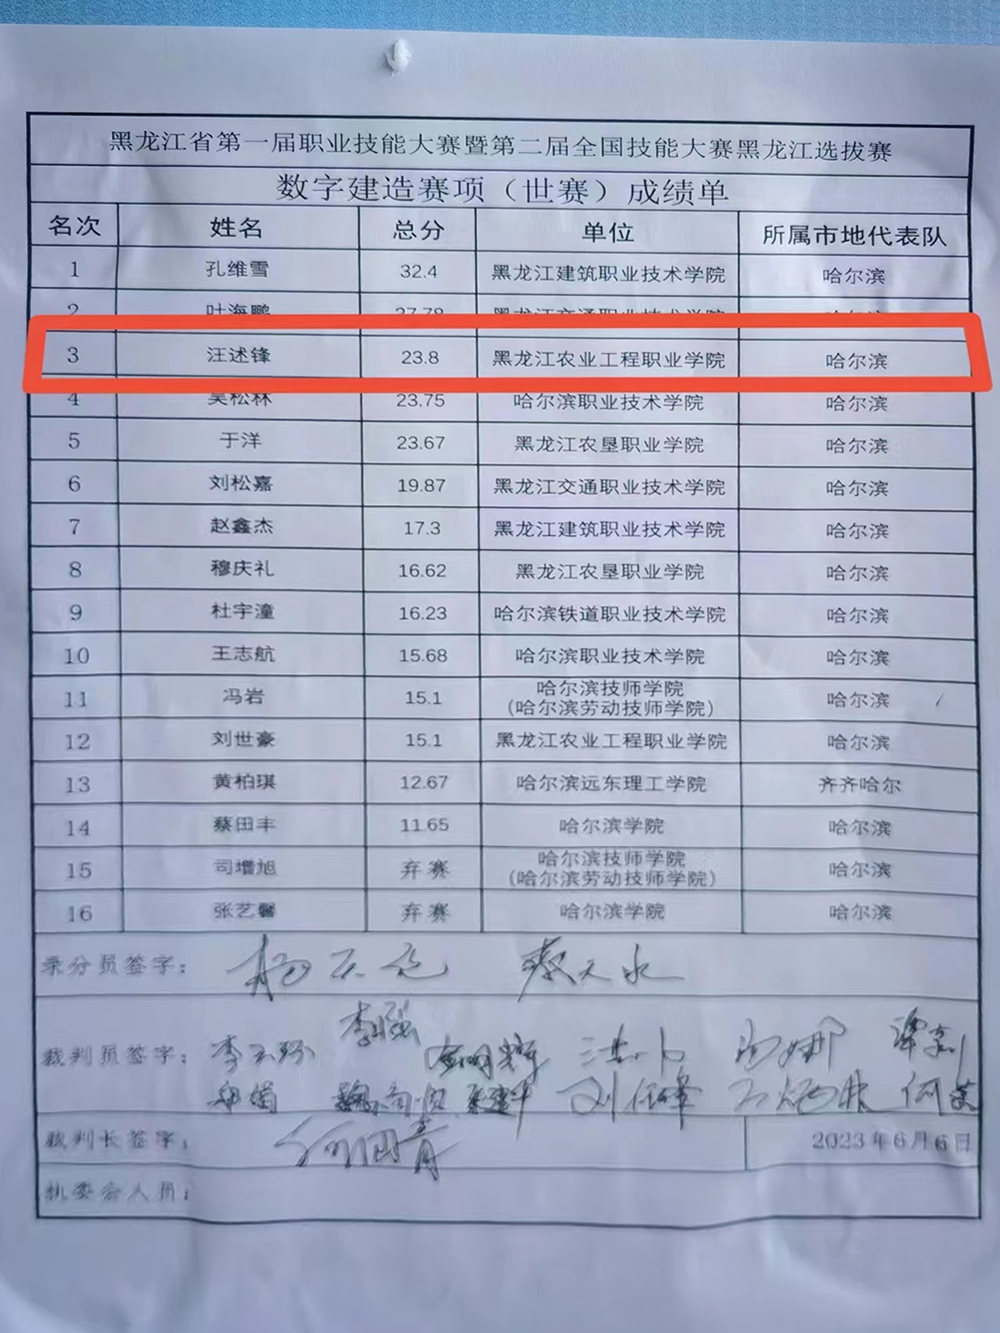 黑龙江省第一届职业技能大赛暨第二届全国技能大赛黑龙江选拔赛
数字建造赛项（世赛）成绩单
名次 姓名 总分 单位 所属市地代表队
1 孔维雪 32.4 黑龙江建筑职业技术学院 哈尔滨
2 叶海鹏 27.78 黑龙江交通职业技术学院 哈尔滨
3 汪述锋 23.8 黑龙江农业工程职业学院 哈尔滨
4 吴松林 23.75 哈尔滨职业技术学院 哈尔滨
5 于洋 23.67 黑龙江农垦职业学院 哈尔滨
6 刘松嘉 19.87 黑龙江交通职业技术学院 哈尔滨
7 赵鑫杰 17.3 黑龙江建筑职业技术学院 哈尔滨
8 穆庆礼 16.62 黑龙江农垦职业学院 哈尔滨
9 杜宇潼 16.23 哈尔滨铁道职业技术学院 哈尔滨
10 王志航 15.68 哈尔滨职业技术学院 哈尔滨
11 冯岩 15.1 哈尔滨技师学院（哈尔滨劳动技师学院） 哈尔滨
12 刘世豪 15.1 黑龙江农业工程职业学院 哈尔滨
13 黄柏琪 12.67 哈尔滨远东理工学院 齐齐哈尔
14 蔡田丰 11.65 哈尔滨学院 哈尔滨
15 司增旭 弃赛 哈尔滨技师学院（哈尔滨劳动技师学院） 哈尔滨
16 张艺馨 弃赛 哈尔滨学院 哈尔滨
录分员签字：
裁判员签字：
裁判长签字： 2023年6月6日
执委会人员：